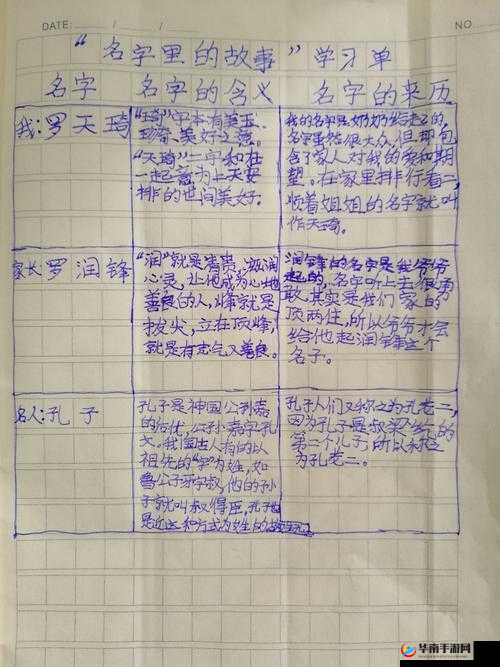 DATE: / / NO
“名字里的故事”学习单
名字 名字的含义 名字的来历
我:罗天琦
“琦”字本有美玉、
美好之意。
“天琦”二字和在
一起意为上天安
排的世间美好。
我的名字是奶奶给起的,
名字虽然很大众,但却包
含了家人对我的爱和期
望。在家里排行看二,
顺着姐姐的名字就叫
作天琦。
家长罗润锋
“润”就是滋润
心灵,让他成为心地
善良的人,烽就是
拔尖,立在顶峰,
就是有志气又善良。
润锋的名字是我爷爷
起的,名字听上去很勇
敢,其实是我们家的
顶两住,所以爷爷才会
给他起润锋这个
名子。
名人:孔子
孔子是神国公利嘉
的后代,公孙嘉字孔
父,我国古人有的以
祖先的“字”为姓,如
鲁公子牙字叔,他的孙
子就叫叔得臣,孔子也
是近这和方式为姓的
孔子人们又称之为孔老二,
因为孔子是叔梁纥的
第二个儿子,所以称之
为孔老二。
华南手游网